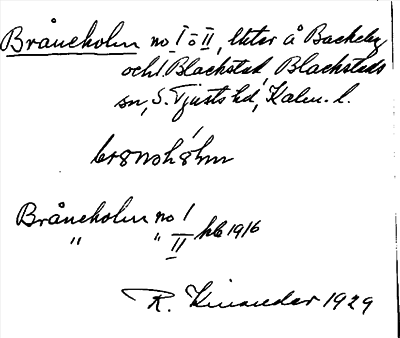 Bråneholm no I o II, lhter å Backeby
och Blackstad, Blackstads
sn, S. Tjusts hd, Kalm. l.
brånshólm
Bråneholm no I
" " II kb 1916
R. Kinander 1929